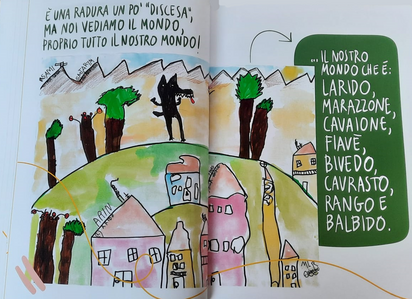 È UNA RADURA UN PO' "DISCESA",
MA NOI VEDIAMO IL MONDO,
PROPRIO TUTTO IL NOSTRO MONDO!
... IL NOSTRO
MONDO CHE È:
LARIDO,
MARAZZONE,
CAVAIONE,
FIAVÈ,
BIVEDO,
CAVRASTO,
RANGO E
BALBIDO.